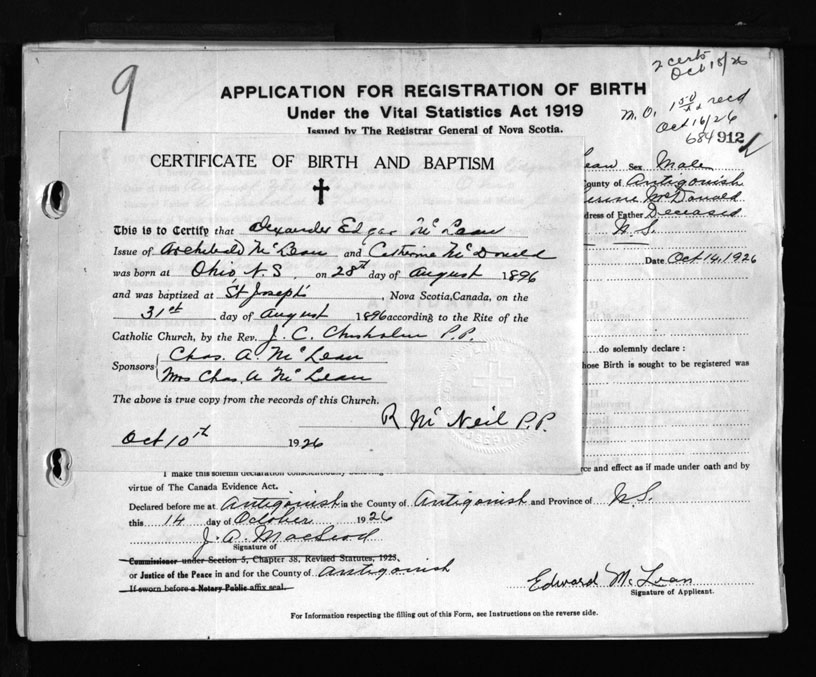 9
2 certs
Oct 18/26
APPLICATION FOR REGISTRATION OF BIRTH
Under the Vital Statistics Act 1919
M. O. 1 50 recd
Oct 16/26
Issued by The Registrar General of Nova Scotia.
684912
CERTIFICATE OF BIRTH AND BAPTISM
Sex Male
county of Antigonish
McDonald
dress of Father Deceased
N. S.
This is to Certify that Alexander Edgar McLean
Issue of Archibald McLean and Catherine McDonald
Date Oct 14, 1926
was born at Ohio N.S. on 28th day of August 1896
and was baptized at St Joseph's, Nova Scotia, Canada, on the
31st day of August 1896 according to the Rite of the
Catholic Church, by the Rev. J. C. Chisholm P.P.
do solemnly declare :
Sponsors Chas. A. McLean
Mrs Chas. A McLean
hose Birth is sought to be registered was
The above is true copy from the records of this Church.
R McNeil P.P.
Oct 10th 1926
I make this solemn declaration conscientiously
rce and effect as if made under oath and by
virtue of The Canada Evidence Act.
Declared before me at Antigonish in the County of Antigonish and Province of N.S.
this 14 day of October 1926
J. A. MacLeod
Signature of
Commissioner under Section 5, Chapter 38, Revised Statutes, 1923,
or Justice of the Peace in and for the County of Antigonish
If sworn before a Notary Public affix seal.
Edward McLean
Signature of Applicant.
For Information respecting the filling out of this Form, see Instructions on the reverse side.